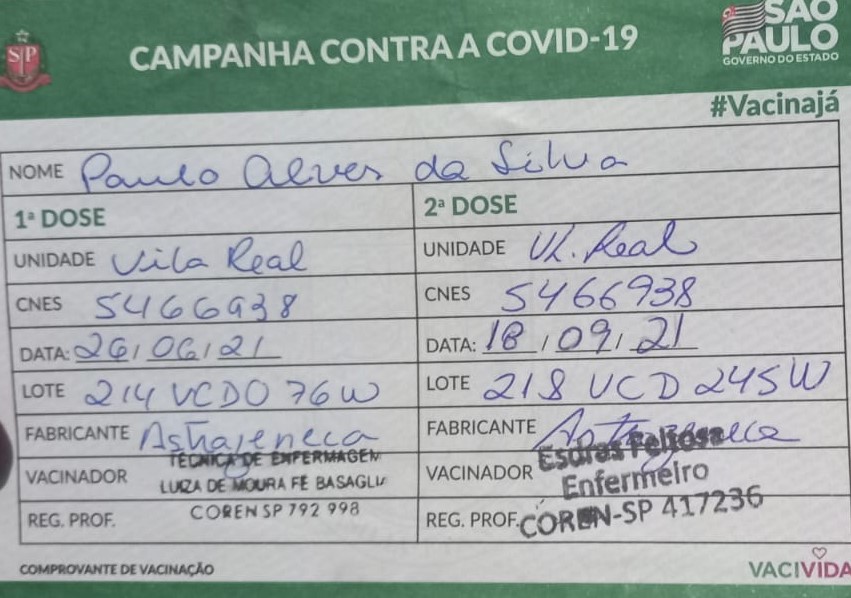 SP
CAMPANHA CONTRA A COVID-19
SÃO
PAULO
GOVERNO DO ESTADO
#Vacinajá
NOME Paulo Alves da Silva
1ª DOSE
UNIDADE Vila Real
CNES 5466938
DATA: 26/06/21
LOTE 214 VCD076W
FABRICANTE Astrajeneca
VACINADOR TÉCNICA DE ENFERMAGEM
LUIZA DE MOURA FÉ BASAGLIA
REG. PROF. COREN SP 792 998
2ª DOSE
UNIDADE Vl. Real
CNES 5466938
DATA: 18/09/21
LOTE 218 VCD 245W
FABRICANTE
VACINADOR Esdras Feitosa
Enfermeiro
REG. PROF. COREN-SP 417236
COMPROVANTE DE VACINAÇÃO
VACIVIDA